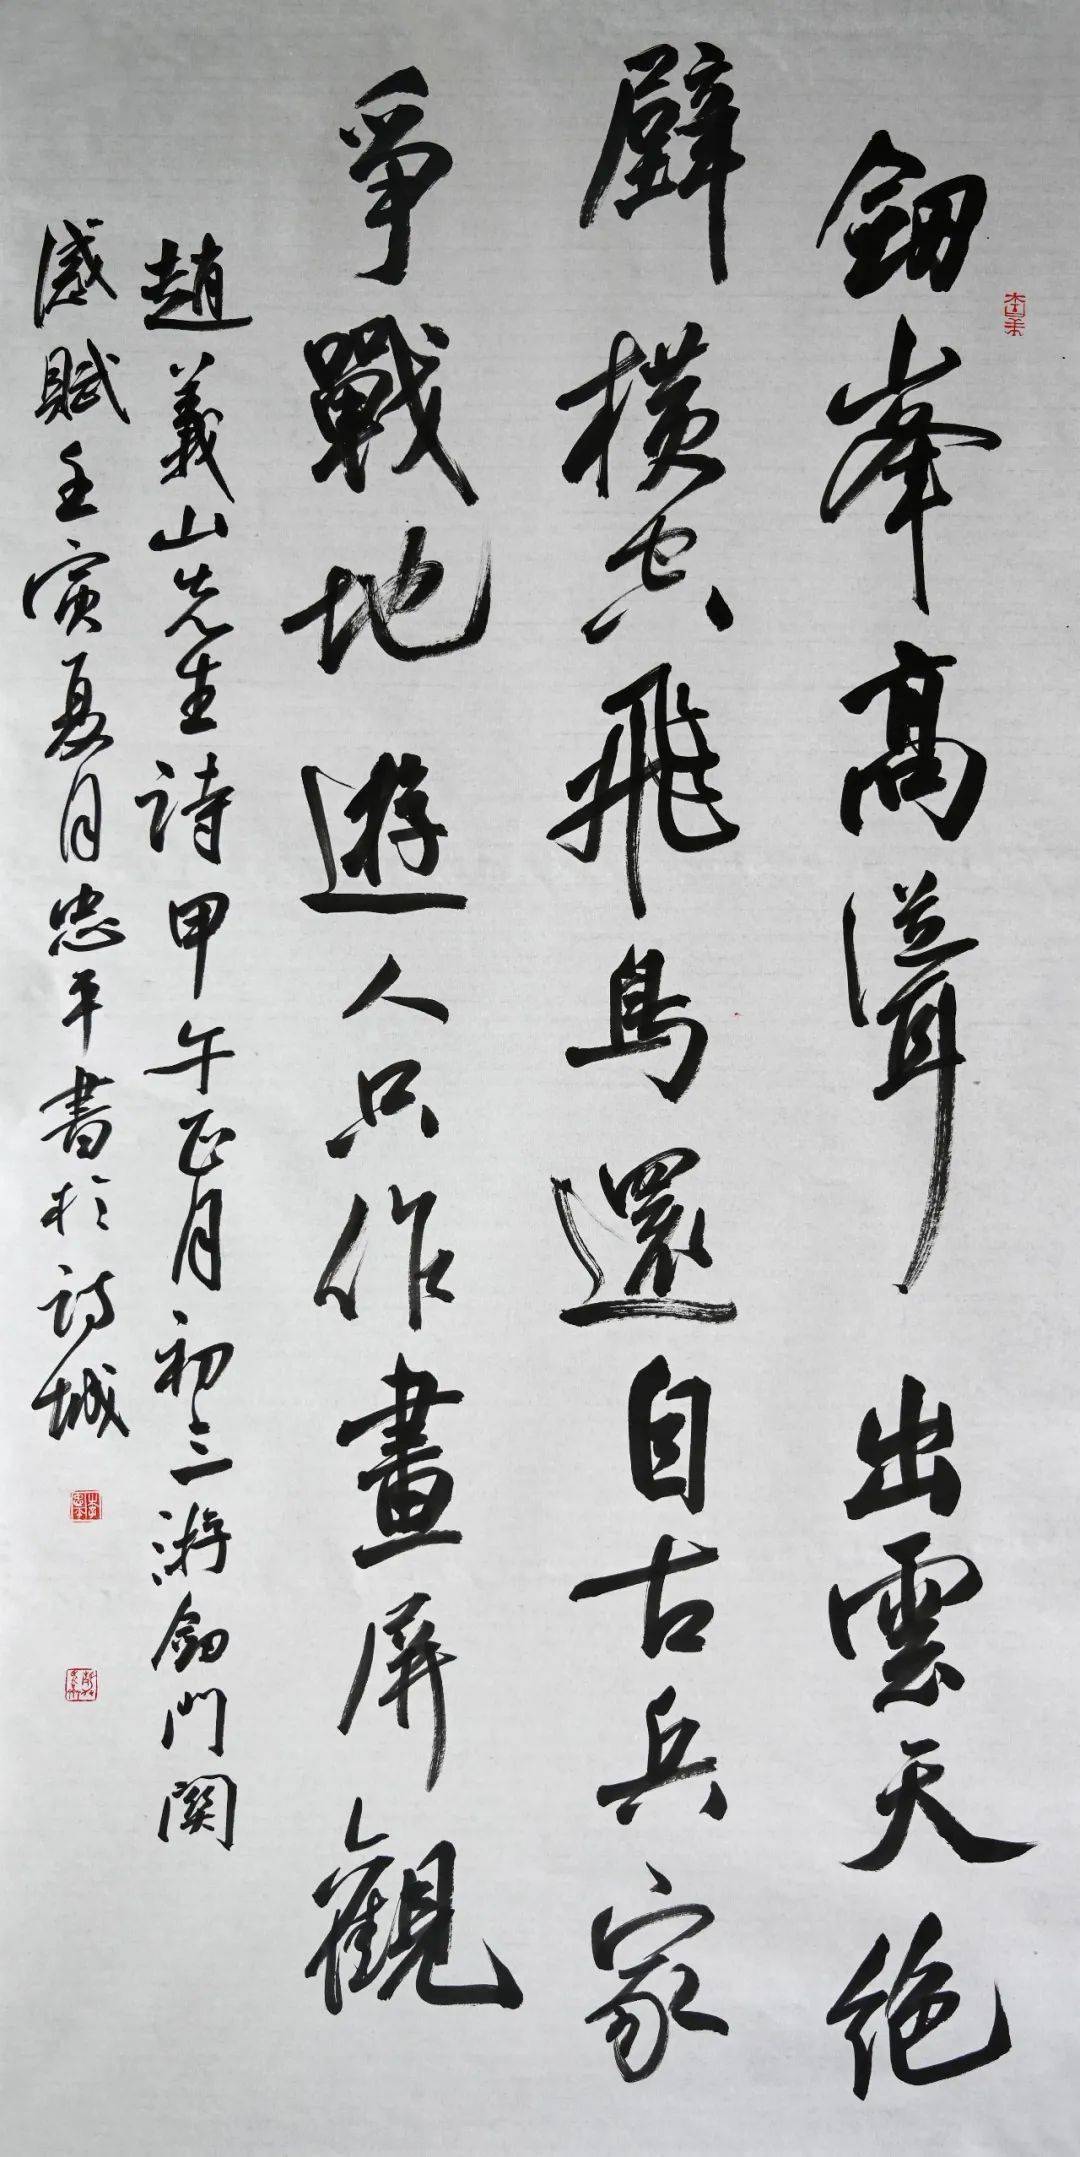 劒峯高聳出雲天絶
壁橫空飛鳥還自古兵家
爭戰地遊人只作畫屏觀
趙義山先生詩甲午正月初三游劒門関
感賦壬寅夏月忠平書於詩城